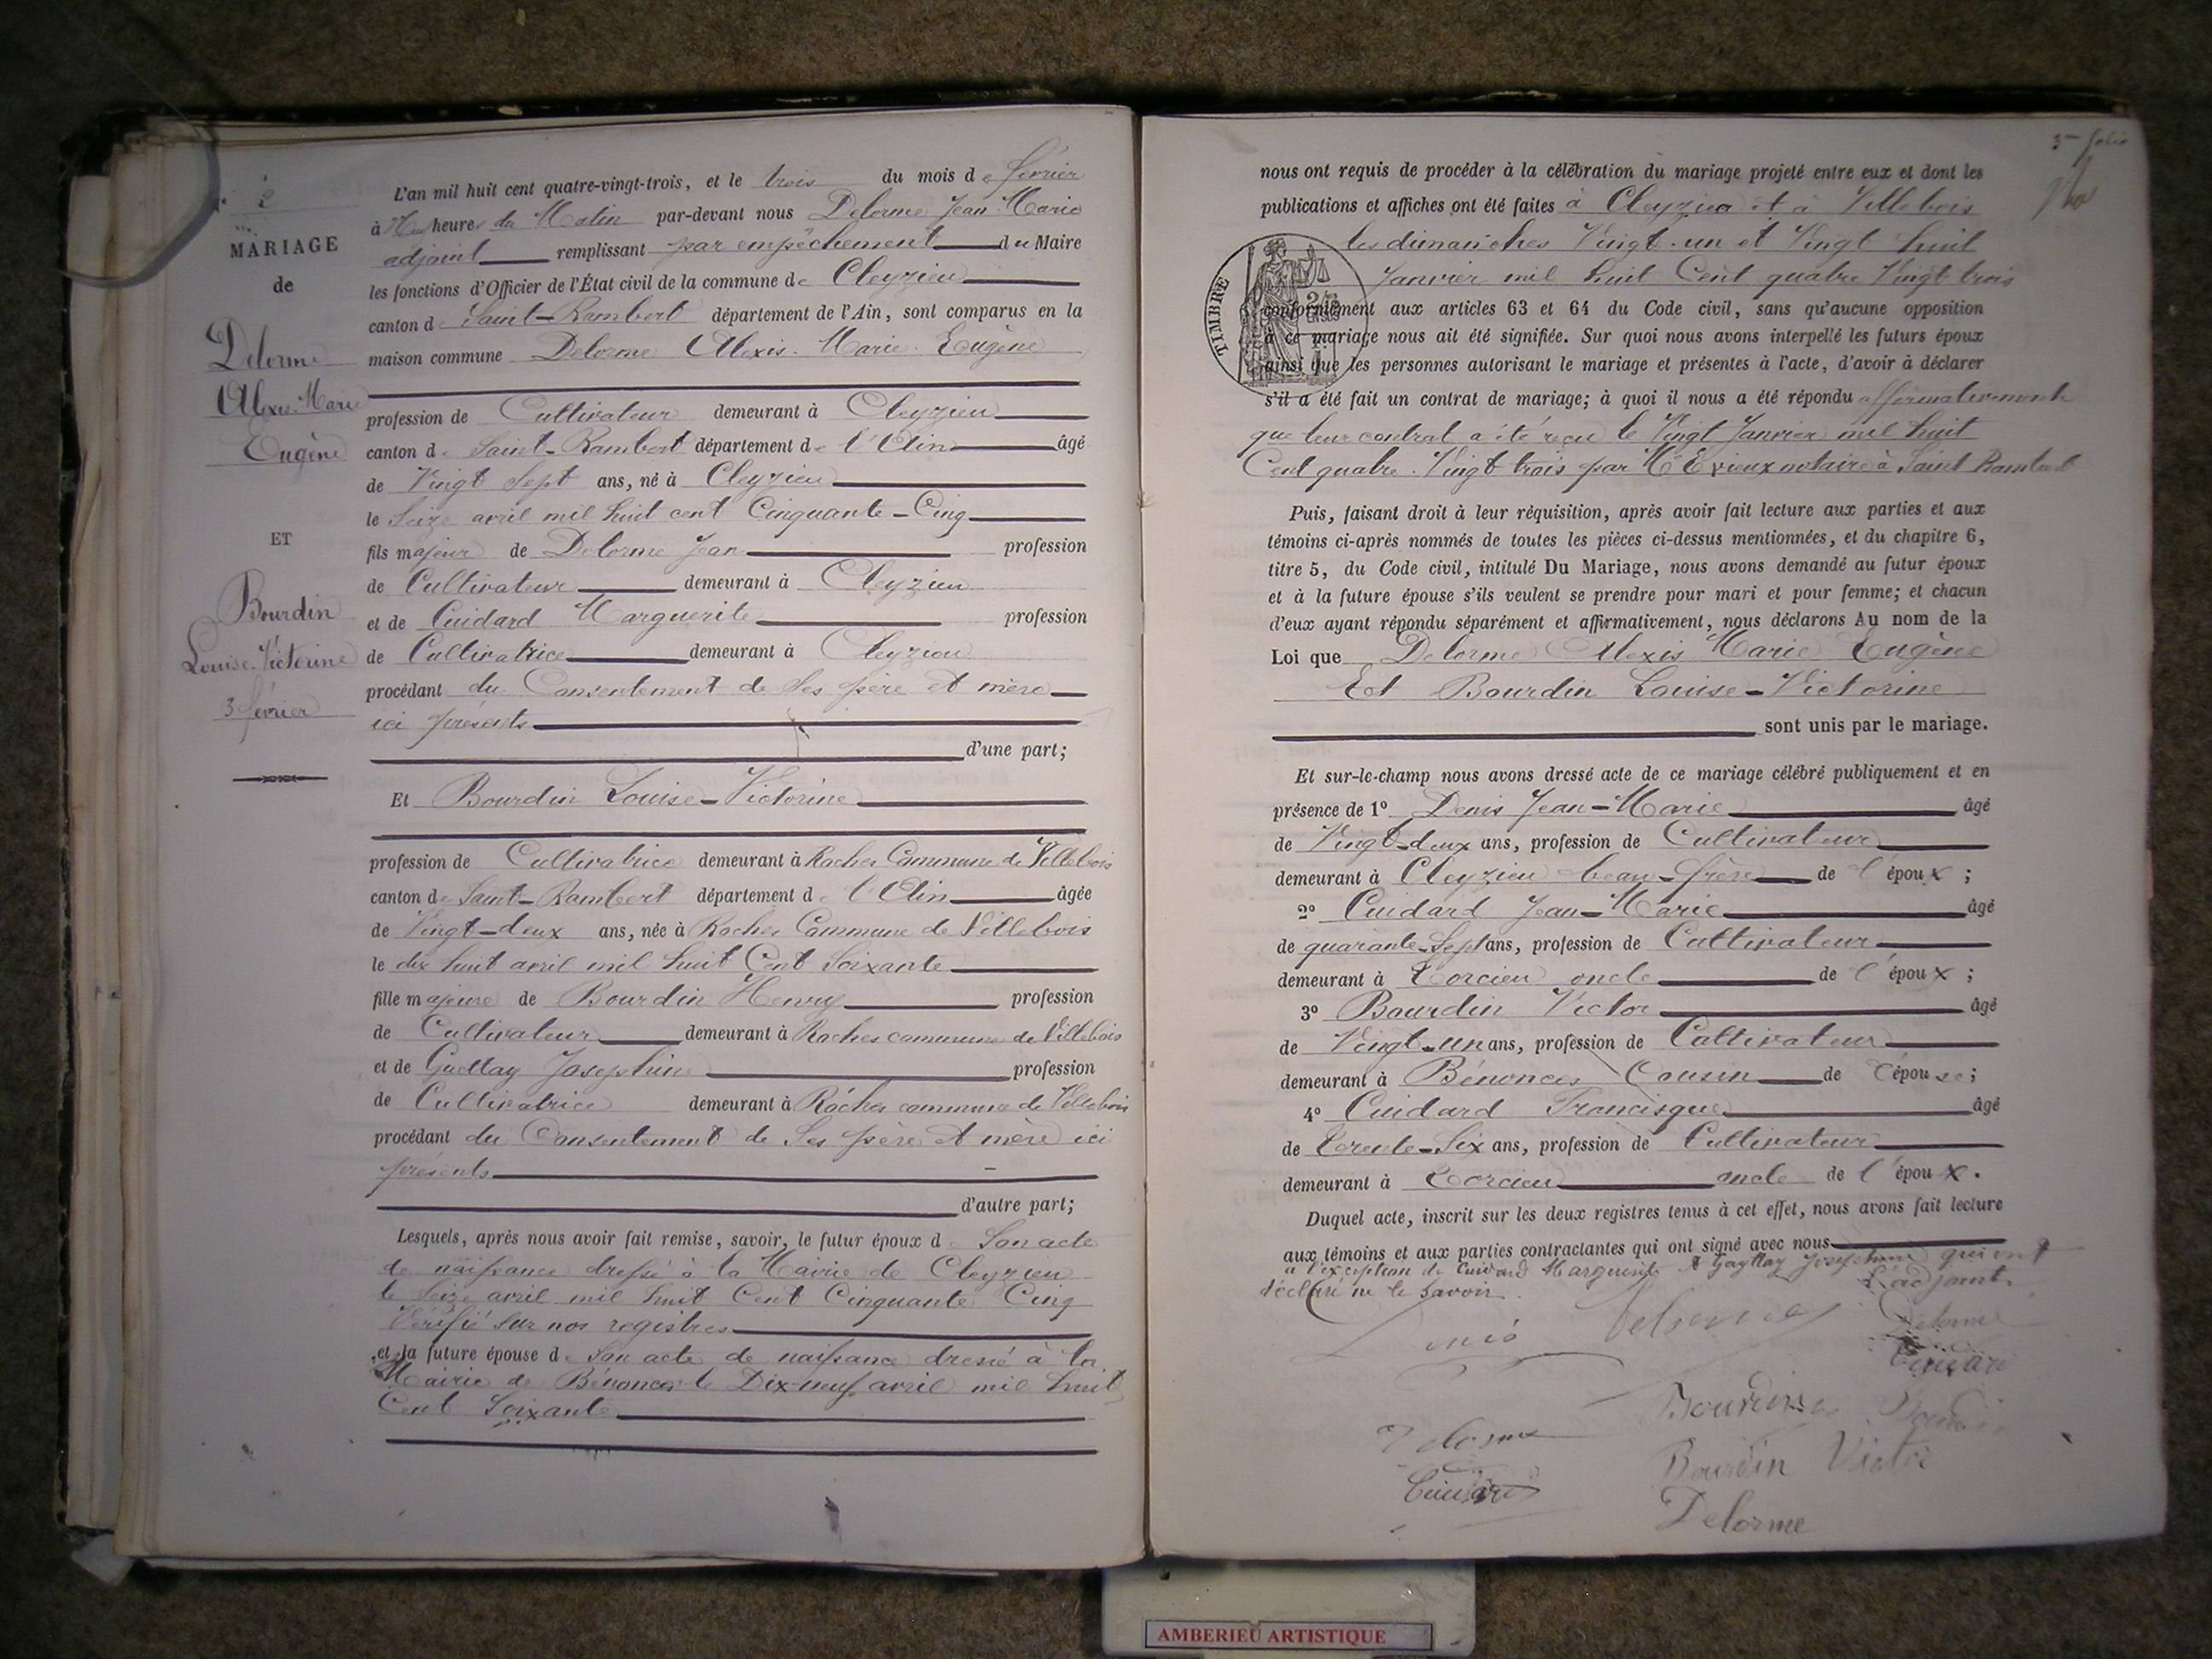 N° 2
MARIAGE
de
Delorme
Alexis Marie
Eugène
ET
Bourdin
Louise-Victorine
3 février
L'an mil huit cent quatre-vingt-trois, et le trois du mois de février
à heures du Matin par-devant nous Delorme Jean-Marie
adjoint remplissant par empêchement du Maire
les fonctions d'Officier de l'État civil de la commune de Cleyzieu
canton de Saint-Rambert département de l'Ain, sont comparus en la
maison commune Delorme Alexis-Marie-Eugène
profession de Cultivateur demeurant à Cleyzieu
canton de Saint-Rambert département de l'Ain âgé
de Vingt Sept ans, né à Cleyzieu
le Seize avril mil huit cent Cinquante-Cinq
fils majeur de Delorme Jean profession
de Cultivateur demeurant à Cleyzieu
et de Cuidard Marguerite profession
de Cultivatrice demeurant à Cleyzieu
procédant du Consentement de Ses père et mère
ici présents
d'une part;
Et Bourdin Louise-Victorine
profession de Cultivatrice demeurant à Roches Commune de Villebois
canton de Saint-Rambert département de l'Ain âgée
de Vingt-deux ans, née à Roches Commune de Villebois
le dix huit avril mil huit Cent Soixante
fille majeure de Bourdin Henry profession
de Cultivateur demeurant à Roches commune de Villebois
et de Josephine profession
de Cultivatrice demeurant à Roches commune de Villebois
procédant du Consentement de Ses père et mère ici
présents
d'autre part;
Lesquels, après nous avoir fait remise, savoir, le futur époux de Son acte
de naissance dressé à la Mairie de Cleyzieu
le Seize avril mil huit Cent Cinquante Cinq
Vérifié Sur nos registres
et la future épouse de Son acte de naissance dressé à la
Mairie de Bénonces le Dix-neuf avril mil huit
Cent Soixante
3me folio
nous ont requis de procéder à la célébration du mariage projeté entre eux et dont les
publications et affiches ont été faites à Cleyzieu et à Villebois
les dimanches Vingt-un et Vingt huit
Janvier mil huit Cent quatre Vingt trois
TIMBRE
conformément aux articles 63 et 64 du Code civil, sans qu'aucune opposition
à ce mariage nous ait été signifiée. Sur quoi nous avons interpellé les futurs époux
ainsi que les personnes autorisant le mariage et présentes à l'acte, d'avoir à déclarer
s'il a été fait un contrat de mariage; à quoi il nous a été répondu affirmativement
que leur contrat a été reçu le Vingt Janvier mil huit
Cent quatre-Vingt trois par Me notaire à Saint Rambert
Puis, faisant droit à leur réquisition, après avoir fait lecture aux parties et aux
témoins ci-après nommés de toutes les pièces ci-dessus mentionnées, et du chapitre 6,
titre 5, du Code civil, intitulé Du Mariage, nous avons demandé au futur époux
et à la future épouse s'ils veulent se prendre pour mari et pour femme; et chacun
d'eux ayant répondu séparément et affirmativement, nous déclarons Au nom de la
Loi que Delorme Alexis Marie Eugène
Et Bourdin Louise-Victorine
sont unis par le mariage.
Et sur-le-champ nous avons dressé acte de ce mariage célébré publiquement et en
présence de 1° Denis Jean-Marie âgé
de Vingt-deux ans, profession de Cultivateur
demeurant à Cleyzieu beau-frère de l'époux;
2° Cuidard Jean-Marie âgé
de quarante-Sept ans, profession de Cultivateur
demeurant à Torcieu oncle de l'époux;
3° Bourdin Victor âgé
de Vingt-un ans, profession de Cultivateur
demeurant à Bénonces Cousin de l'épouse;
4° Cuidard Francisque âgé
de trente-Six ans, profession de Cultivateur
demeurant à Torcieu oncle de l'époux.
Duquel acte, inscrit sur les deux registres tenus à cet effet, nous avons fait lecture
aux témoins et aux parties contractantes qui ont signé avec nous
à l'exception de Cuidard Marguerite et Josephine qui ont
déclaré ne le Savoir.
L'adjoint
Denis Delorme Delorme
Cuidard
Bourdin
Delorme
Bourdin Victor
Cuidard
Delorme
AMBERIEU ARTISTIQUE